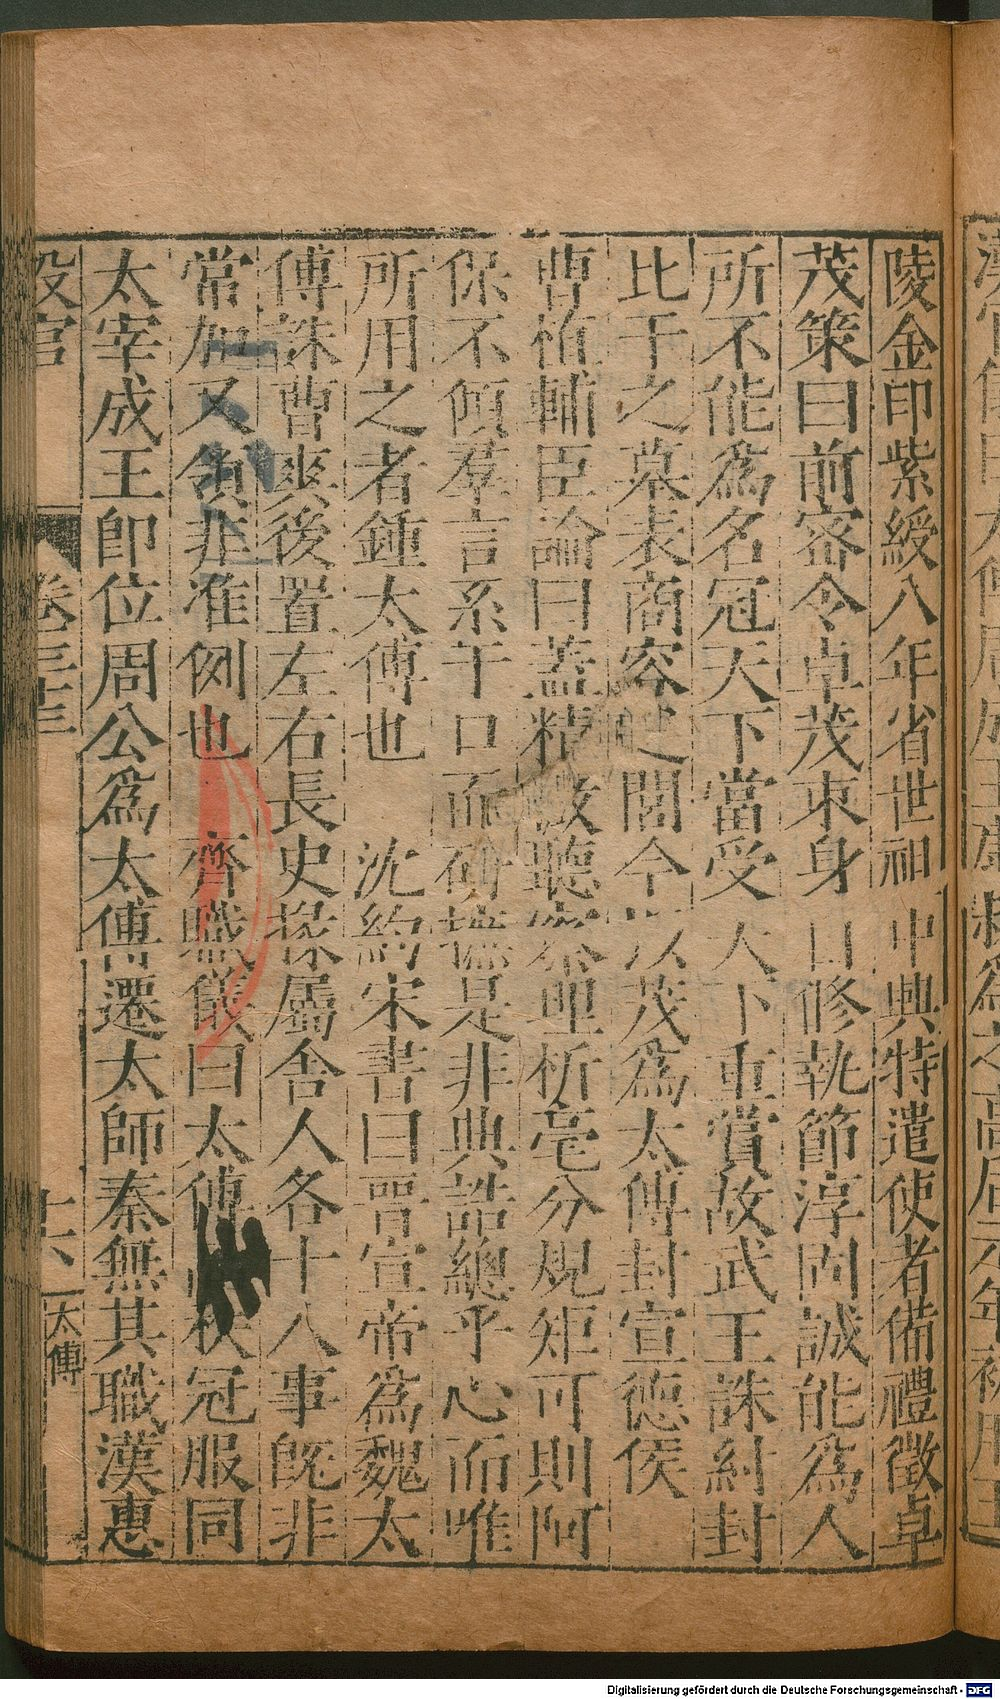 陵金印紫綬八年省世祖 中興特遣使者備禮徵卓
茂策曰前密令卓茂束身自修執節淳固誠能為人
所不能為名冠天下當受天下重賞故武王誅紂封
比干之墓表商容之閭今以茂為太傅封宣德侯
曹植輔臣論曰蓋精微聽察理析毫分規矩可則阿
保不傾羣言系于口而研摭是非典誥總乎心而唯
所用之者鍾太傅也 沈約宋書曰晉宣帝為魏太
傅誅曹爽後置左右長史掾屬舍人各十人事旣非
常加又領非准例也 齊職儀曰太傅 秩冠服同
太宰成王即位周公為太傅遷太師秦無其職漢惠
設官 卷三 十六 太傅
Digitalisierung gefördert durch die Deutsche Forschungsgemeinschaft - DFG